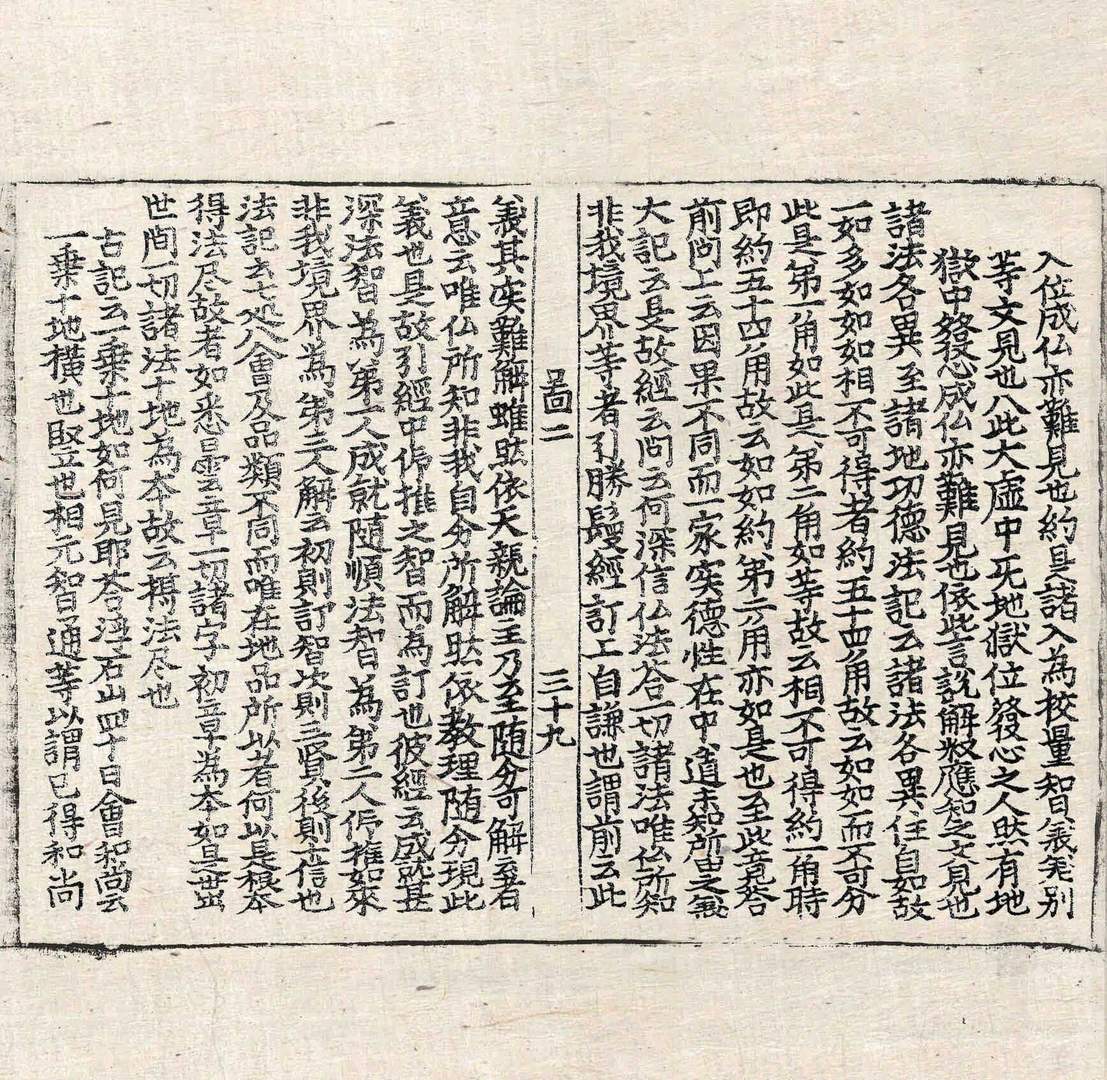 入位成仏亦難見也約具諸入為校量智義差別
等文見也八此大虛中旡地獄位發心之人然有地
獄中發心成仏亦難見也依此言說解釈應知之文見也
諸法各異至諸地功德法記云諸法各異住自如故
一如多如如如相不可得者約五十四角故云如如而不可分
此是第一角如此是第二角如等故云相不可得約一角時
即約五十四角故云如如約第二角亦如是也至此竟答
前問上云因果不同而一家实德性在中道未知所由之義
大記云是故經云問云何深信仏法答一切諸法唯仏所知
非我境界等者引勝鬘經訂上自謙也謂前云此
圖二 三十九
義其实難解雖然依天親論主乃至随分可解至者
意云唯仏所知非我自分所解然依教理随分現此
義也是故引經中作推之智而為訂也彼經云成就甚
深法智為第一人成就随順法智為第二人作推如來
非我境界為第三人解云初則訂智次則三賢後則十信也
法記云七処八會及品類不同而唯在地品所以者何以是根本
得法尽故者如悉曇章一切諸字初章為本如是世出
世間一切諸法十地為本故云攝法尽也
古記云一乗十地如何見耶答浮石山四十日會和尚云
一乗十地橫也竪也相元智通等以謂已得和尚